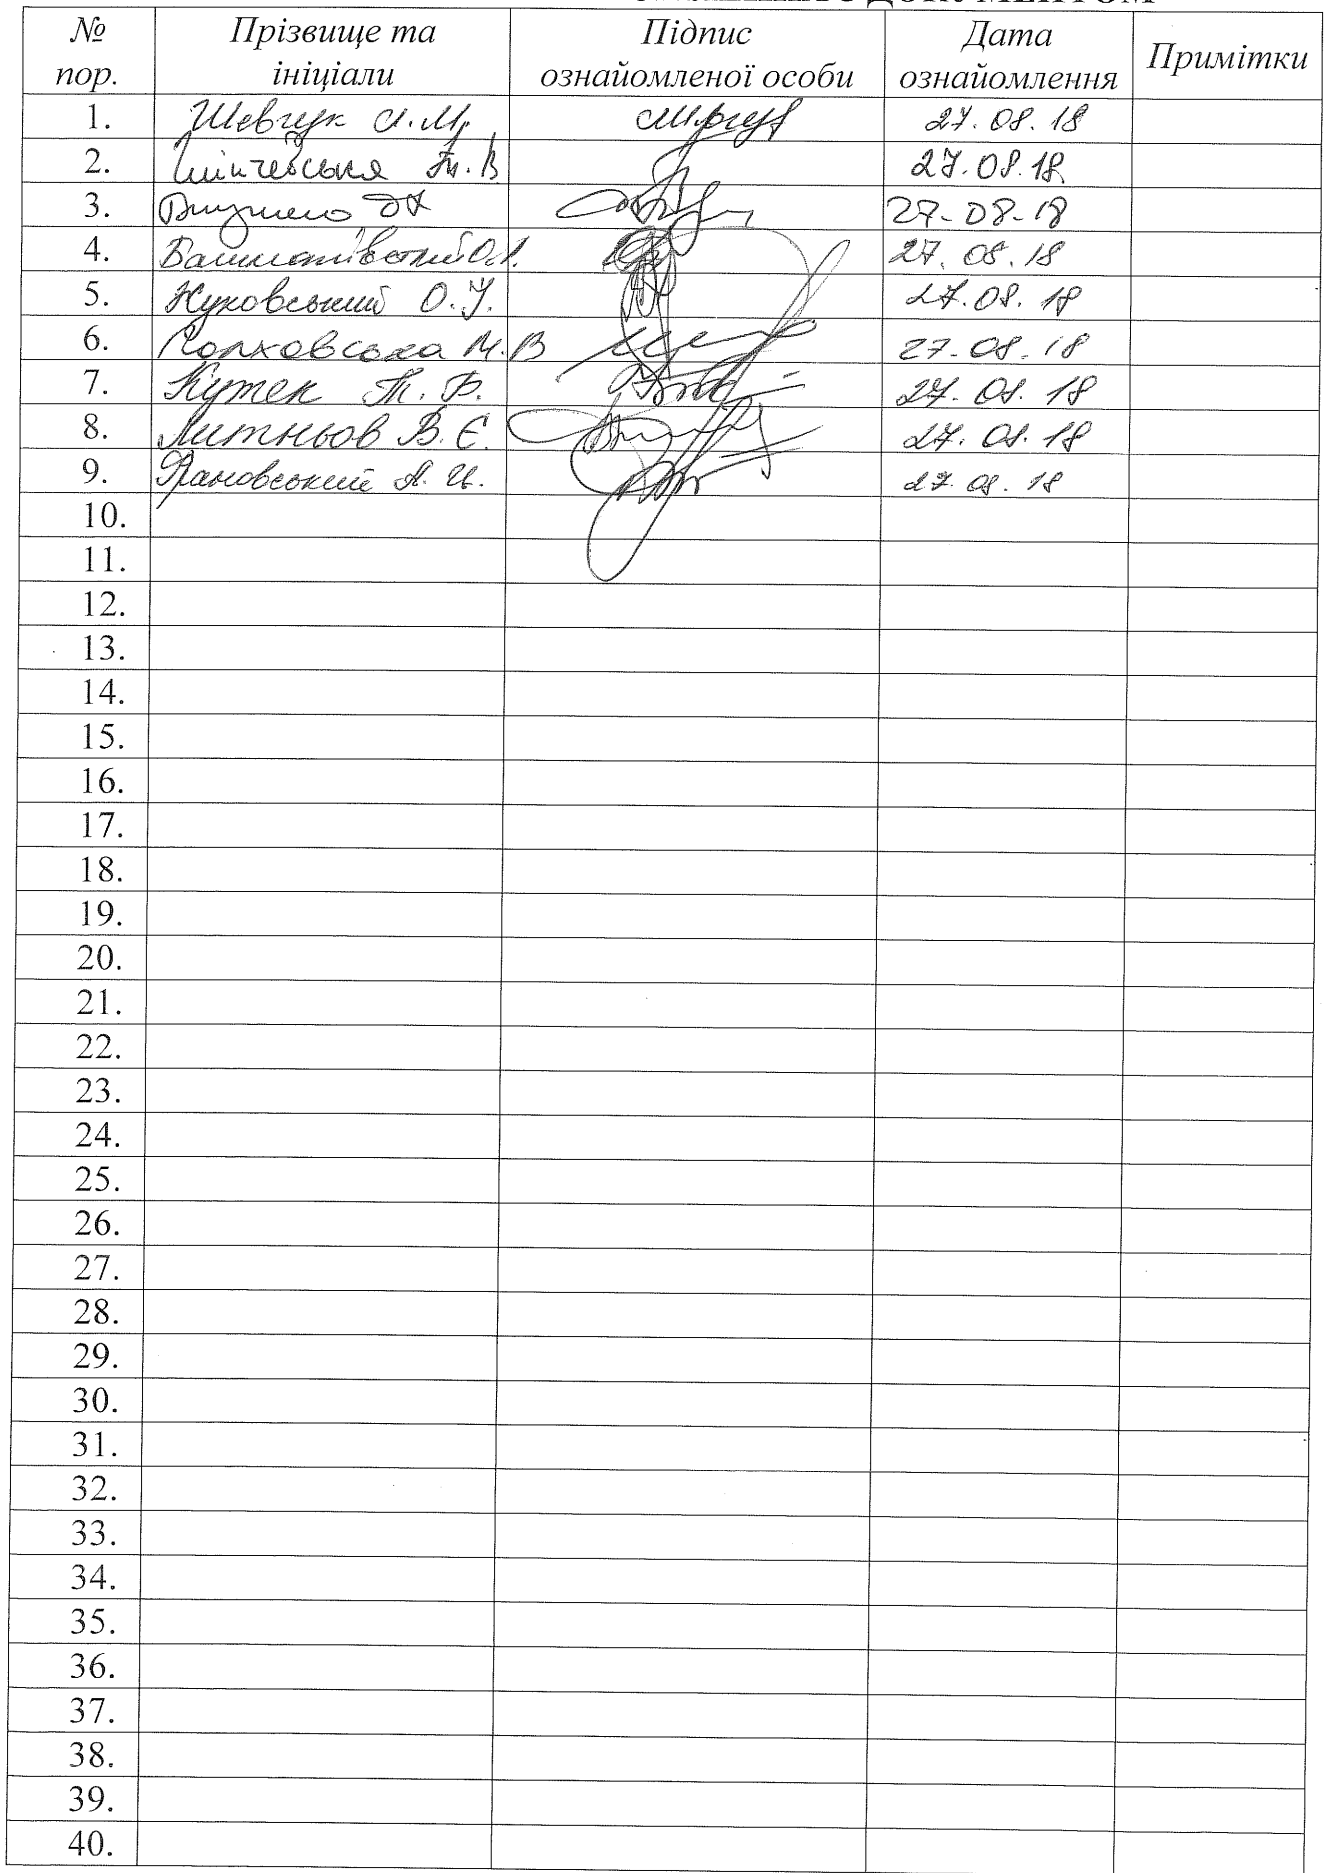 № пор. Прізвище та ініціали Підпис ознайомленої особи Дата ознайомлення Примітки
1. Шевчук Л.М. 27.08.18
2. Т.В 27.08.18
3. 27-08-18
4. 27.08.18
5. Жуковський О.У. 27.08.18
6. М.В 27.08.18
7. Кутек Т.Б. 27.08.18
8. Литньов В.Є. 27.08.18
9. Яановський А. 27.08.18
10.
11.
12.
13.
14.
15.
16.
17.
18.
19.
20.
21.
22.
23.
24.
25.
26.
27.
28.
29.
30.
31.
32.
33.
34.
35.
36.
37.
38.
39.
40.